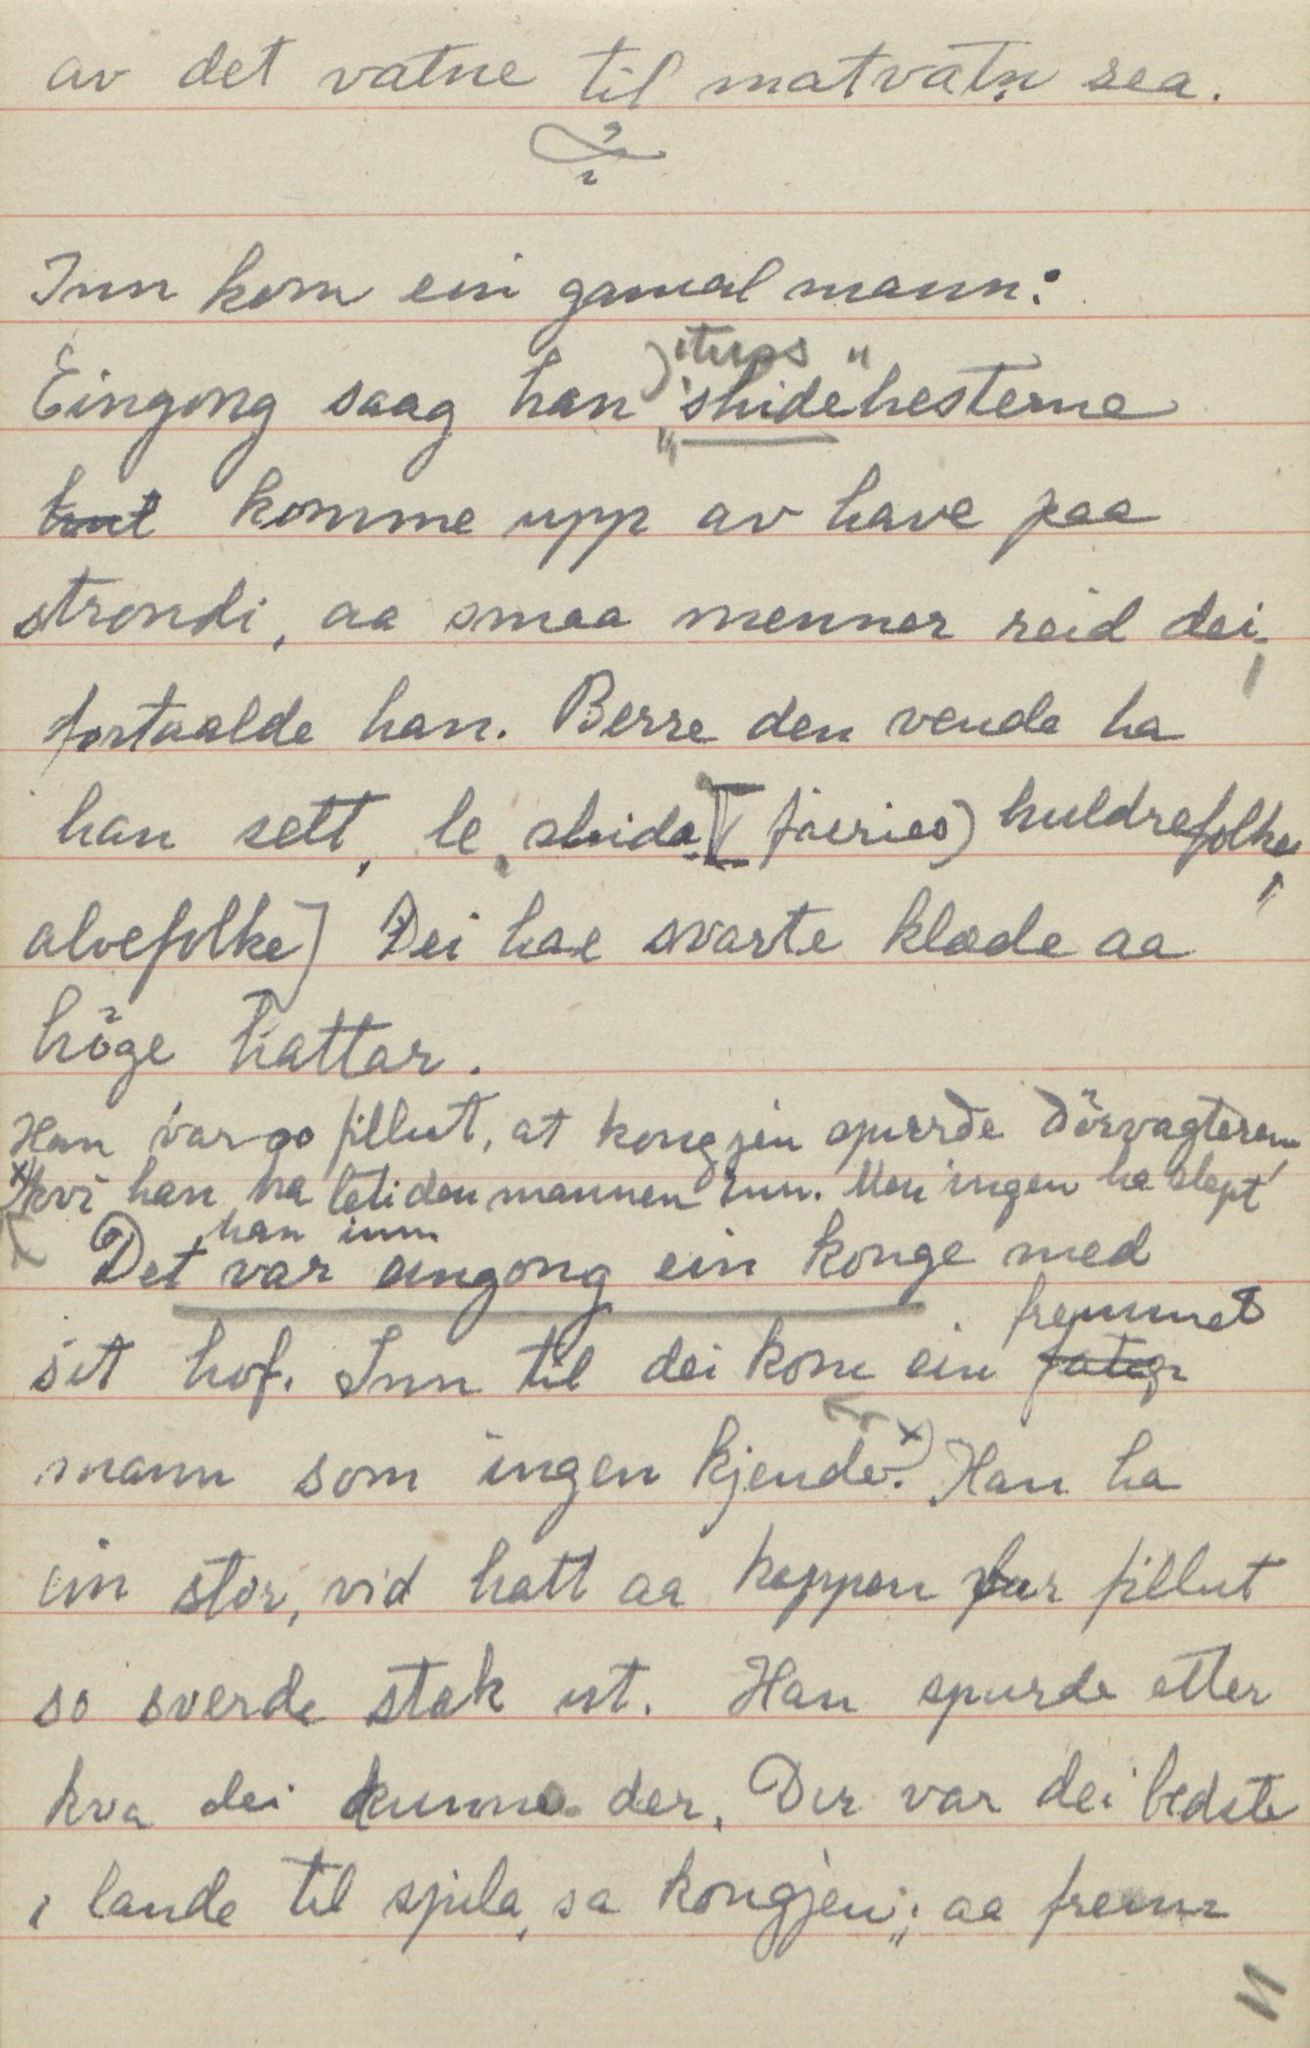 av det vatne til matvatn sea.
Inn kom ein gamal mann:
Eingong saag han "shidehesterne
komme upp av have paa
strondi, aa smaa menner reid dei,
fortaalde han. Berre den vende ha
han sett, le shida [(faeries) huldrefolke,
alvefolke] Dei hae svarte klæde aa
höge hattar.
Han var so fillut, at kongjen spurde dörvagteren
x) kvi han ha leti den mannen inn. Men ingen ha slept
han inn
Det var eingong ein konge med
fremmed
sit hof. Inn til dei kom ein
mann som ingen kjende. x) Han ha
ein stor, vid hatt aa kappen var fillut
so sverde stak ut. Han spurde etter
kva dei kunne der. Der var dei bedste
i lande til spila, sa kongjen; aa frem